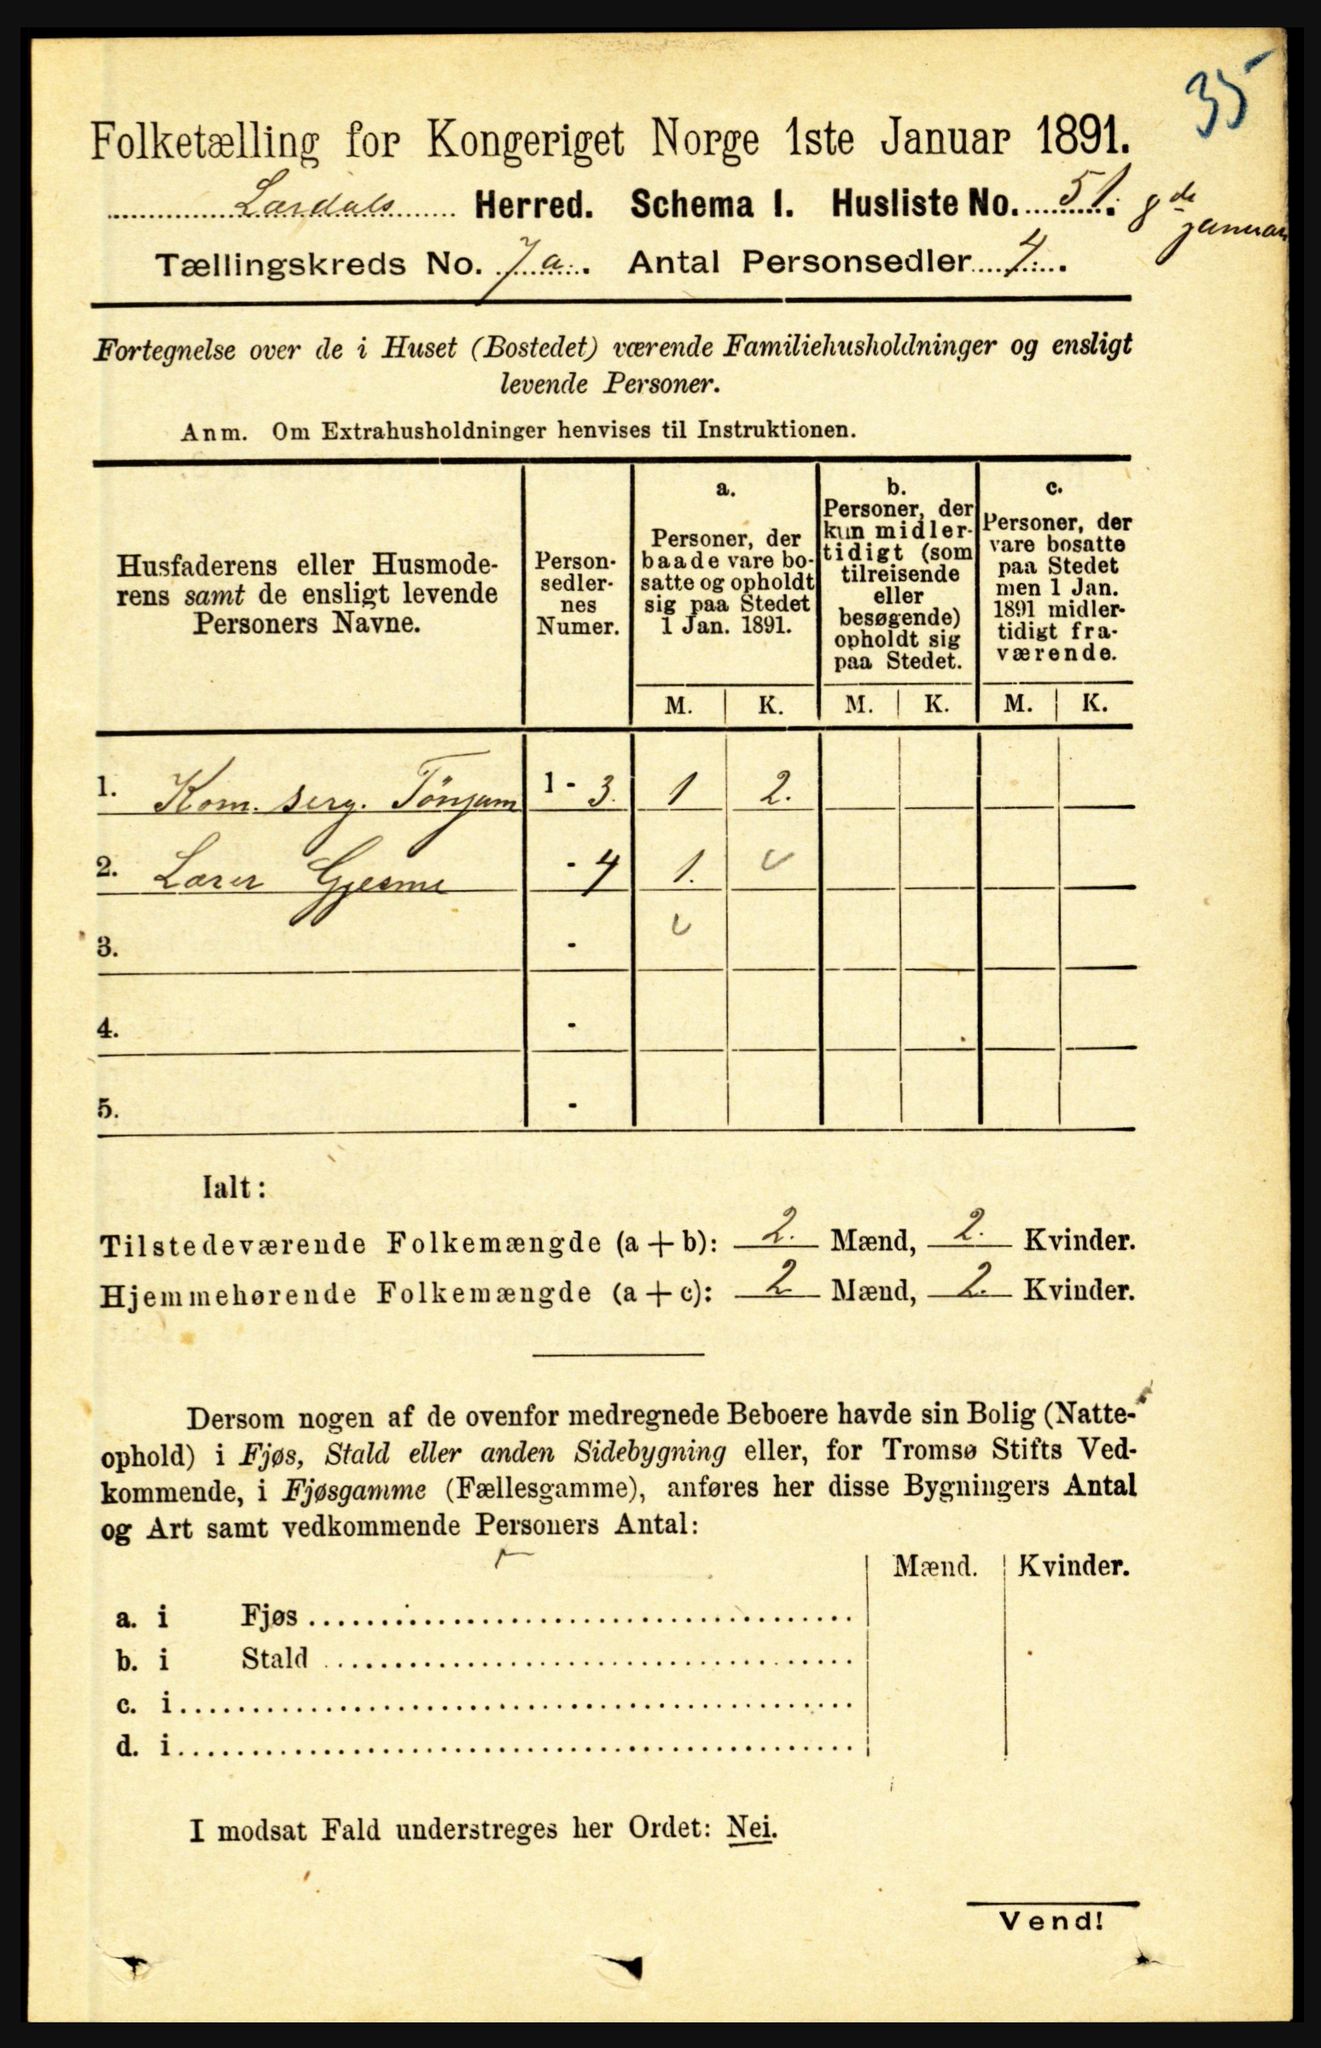 35
Folketælling for Kongeriget Norge 1ste Januar 1891.
Lærdals Herred. Schema I. Husliste No. 51. 8de januar
Tællingskreds No. 7 a. Antal Personsedler 4.
Fortegnelse over de i Huset (Bostedet) værende Familiehusholdninger og ensligt
levende Personer.
Anm. Om Extrahusholdninger henvises til Instruktionen.
Husfaderens eller Husmode-
rens samt de ensligt levende
Personers Navne.
Person-
sedler-
nes
Numer.
a.
Personer, der
baade vare bo-
satte og opholdt
sig paa Stedet
1 Jan. 1891.
b.
Personer, der
kun midler-
tidigt (som
tilreisende
eller
besøgende)
opholdt sig
paa Stedet.
c.
Personer, der
vare bosatte
paa Stedet
men 1 Jan.
1891 midler-
tidigt fra-
værende.
M. K. M. K. M. K.
1. Kom. serg. Tönjum 1 - 3. 1 2.
2. Lærer Gjesme - 4 1.
3. -
4. -
5. -
Ialt:
Tilstedeværende Folkemængde (a + b): 2. Mænd, 2. Kvinder.
Hjemmehørende Folkemængde (a + c): 2 Mænd, 2. Kvinder.
Dersom nogen af de ovenfor medregnede Beboere havde sin Bolig (Natte-
ophold) i Fjøs, Stald eller anden Sidebygning eller, for Tromsø Stifts Ved-
kommende, i Fjøsgamme (Fællesgamme), anføres her disse Bygningers Antal
og Art samt vedkommende Personers Antal:
Mænd. Kvinder.
a. i Fjøs
b. i Stald
c. i
d. i
I modsat Fald understreges her Ordet: Nei.
Vend!